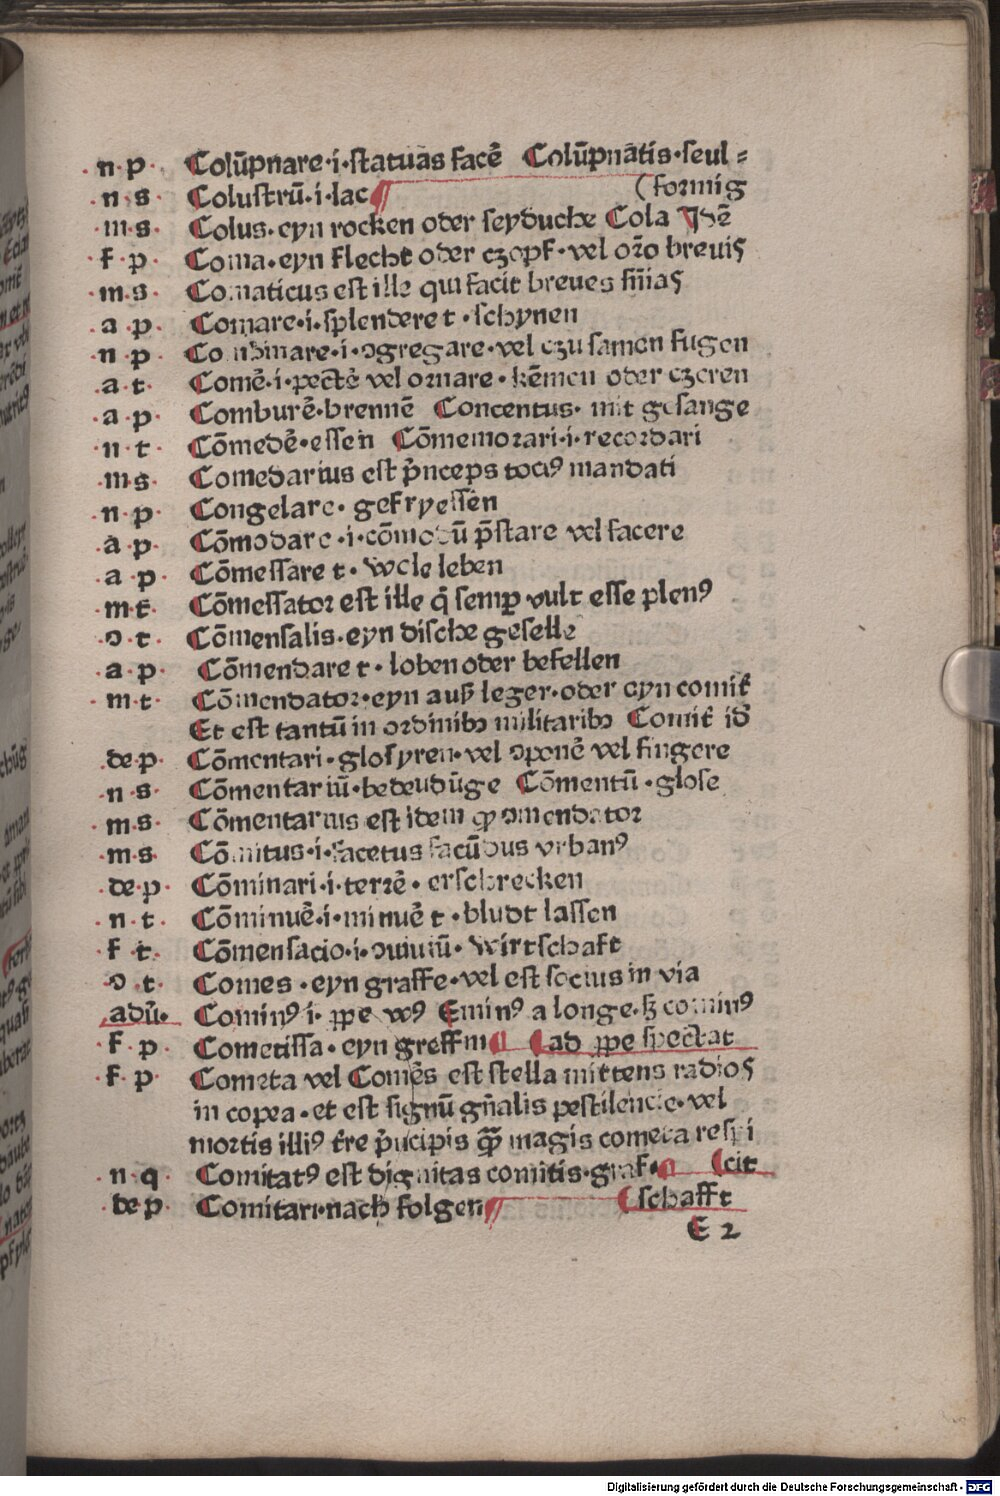 n p Colūpnare·i·statuas facē Colūpnātis·seul⸗
n s Colustrū·i·lac (formig
m s Colus·eyn rocken oder seyduche Cola Jdē
f p Coma·eyn flecht oder czopf·vel oꝛo breuis
m s Comaticus est ille qui facit breues sñias
a p Comare·i·splendere t·schynen
n p Combinare·i·ↄgregare·vel czu samen fugen
a t Comē·i·pectē vel oꝛnare·kēmen oder czeren
a p Comburē·brennē Concentus·mit gesange
n t Cōmedē·essen Cōmemoꝛari·i·recoꝛdari
m s Comedarius est p̄nceps tociꝰ mandati
n p Congelare·gefryessen
a p Cōmodare·i·cōmodū p̄stare vel facere
a p Cōmessare t·Wole leben
m t Cōmessatoꝛ est ille q̄ semꝑ vult esse plenꝰ
ↄ t Cōmensalis·eyn dische geselle
a p Cōmendare t·loben oder befellen
m t Cōmendatoꝛ·eyn auß leger·oder eyn comit̄
Et est tantū in oꝛdinibꝫ militaribꝫ Comit̄ id̄
de p Cōmentari·glosyren·vel ↄponē vel fingere
n s Cōmentariū·bedeudūge Cōmentū·glose
m s Cōmentarius est idem ꝙ ↄmendatoꝛ
m s Cōmitus·i·facetus facūdus vrbanꝰ
de p Cōminari·i·terrē·erschrecken
n t Cōminuē·i·minuē t·bludt lassen
f t Cōmensacio·i·ↄuiuiū·Wirtschaft
ↄ t Comes·eyn graffe·vel est socius in via
adū· Cominꝰ i· ꝓpe Eminꝰ a longe·sꝫ cominꝰ
f p Cometissa·eyn greffin ad ꝓpe spectat
f p Cometa vel Comēs est stella mittens radios
in copea·et est signū gn̄alis pestilencie·vel
moꝛtis illiꝰ t̄re pn̄cipis qm̄ magis cometa respi
n q Comitatꝰ est dignitas comitis·graf· (cit
de p Comitari·nach folgen (schafft
E 2
Digitalisierung gefördert durch die Deutsche Forschungsgemeinschaft - DFG